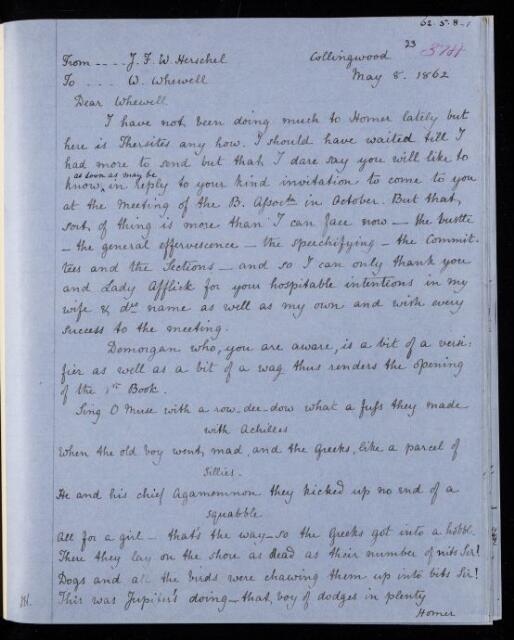 62.5.8-1
23
From ---- J. F. W. Herschel Collingwood
To .... W. Whewell May 8. 1862
Dear Whewell
I have not been doing much to Homer lately but
here is Thersites any how. I should have waited till I
had more to send but that I dare say you will like to
as soon as may be
know, in reply to your kind invitation to come to you
at the meeting of the B. Assoctn in October. But that
sort of thing is more than I can face now — the bustle
— the general effervescence — the speechifying — the Commit-
tees and the Sections — and so I can only thank you
and Lady Affleck for your hospitable intentions in my
wife & drs name as well as my own and wish every
success to the meeting.
Demorgan who, you are aware, is a bit of a versi-
fier as well as a bit of a wag thus renders the opening
of the 1st Book.
Sing O Muse with a row-dee-dow what a fuss they made
with Achilles
When the old boy went mad, and the Greeks, like a parcel of
Sillies.
He and his chief Agamemnon they kicked up no end of a
squabble
All for a girl — that's the way — so the Greeks got into a hobbl.
There they lay on the shore as dead as their number of nits Sir!
Dogs and all the birds were chawing them up into bits Sir!
This was Jupiter's doing — that boy of dodges in plenty
Homer